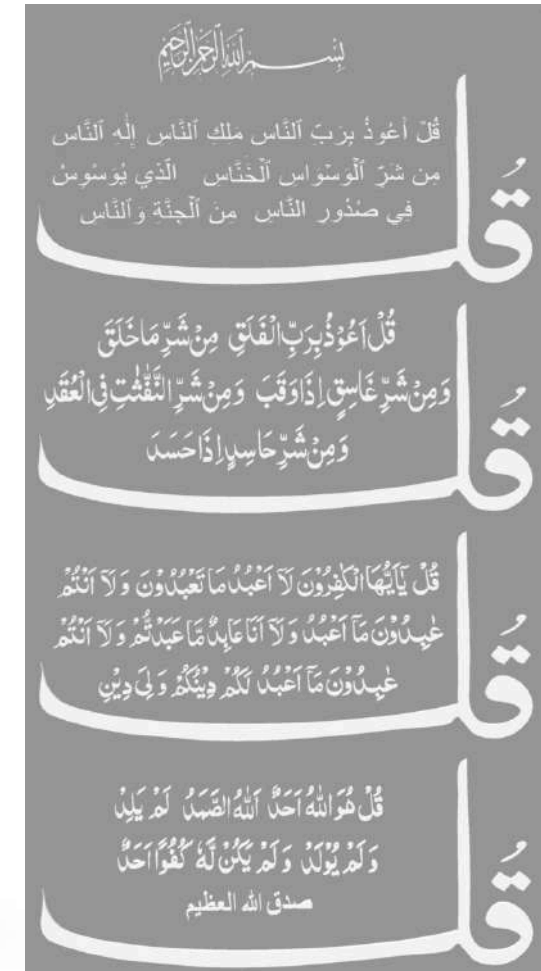 بِسْمِ اللَّهِ الرَّحْمَٰنِ الرَّحِيمِ
قُلْ أَعُوذُ بِرَبِّ ٱلنَّاسِ مَلِكِ ٱلنَّاسِ إِلَٰهِ ٱلنَّاسِ
مِن شَرِّ ٱلْوَسْوَاسِ ٱلْخَنَّاسِ ٱلَّذِي يُوَسْوِسُ
فِي صُدُورِ النَّاسِ مِنَ ٱلْجِنَّةِ وَٱلنَّاسِ
قُل
قُلْ اَعُوْذُ بِرَبِّ الْفَلَقِ مِنْ شَرِّ مَا خَلَقَ
وَمِنْ شَرِّ غَاسِقٍ اِذَا وَقَبَ وَمِنْ شَرِّ النَّفّٰثٰتِ فِی الْعُقَدِ
وَمِنْ شَرِّ حَاسِدٍ اِذَا حَسَدَ
قُل
قُلْ يٰٓاَيُّهَا الْكٰفِرُوْنَ لَآ اَعْبُدُ مَا تَعْبُدُوْنَ وَ لَآ اَنْتُمْ
عٰبِدُوْنَ مَآ اَعْبُدُ وَ لَآ اَنَا عَابِدٌ مَّا عَبَدْتُّمْ وَ لَآ اَنْتُمْ
عٰبِدُوْنَ مَآ اَعْبُدُ لَكُمْ دِيْنُكُمْ وَ لِیَ دِيْنِ
قُل
قُلْ هُوَ اللّٰهُ اَحَدٌ اَللّٰهُ الصَّمَدُ لَمْ يَلِدْ
وَ لَمْ يُوْلَدْ وَ لَمْ يَكُنْ لَّهٗ كُفُوًا اَحَدٌ
صدق الله العظيم
قُل